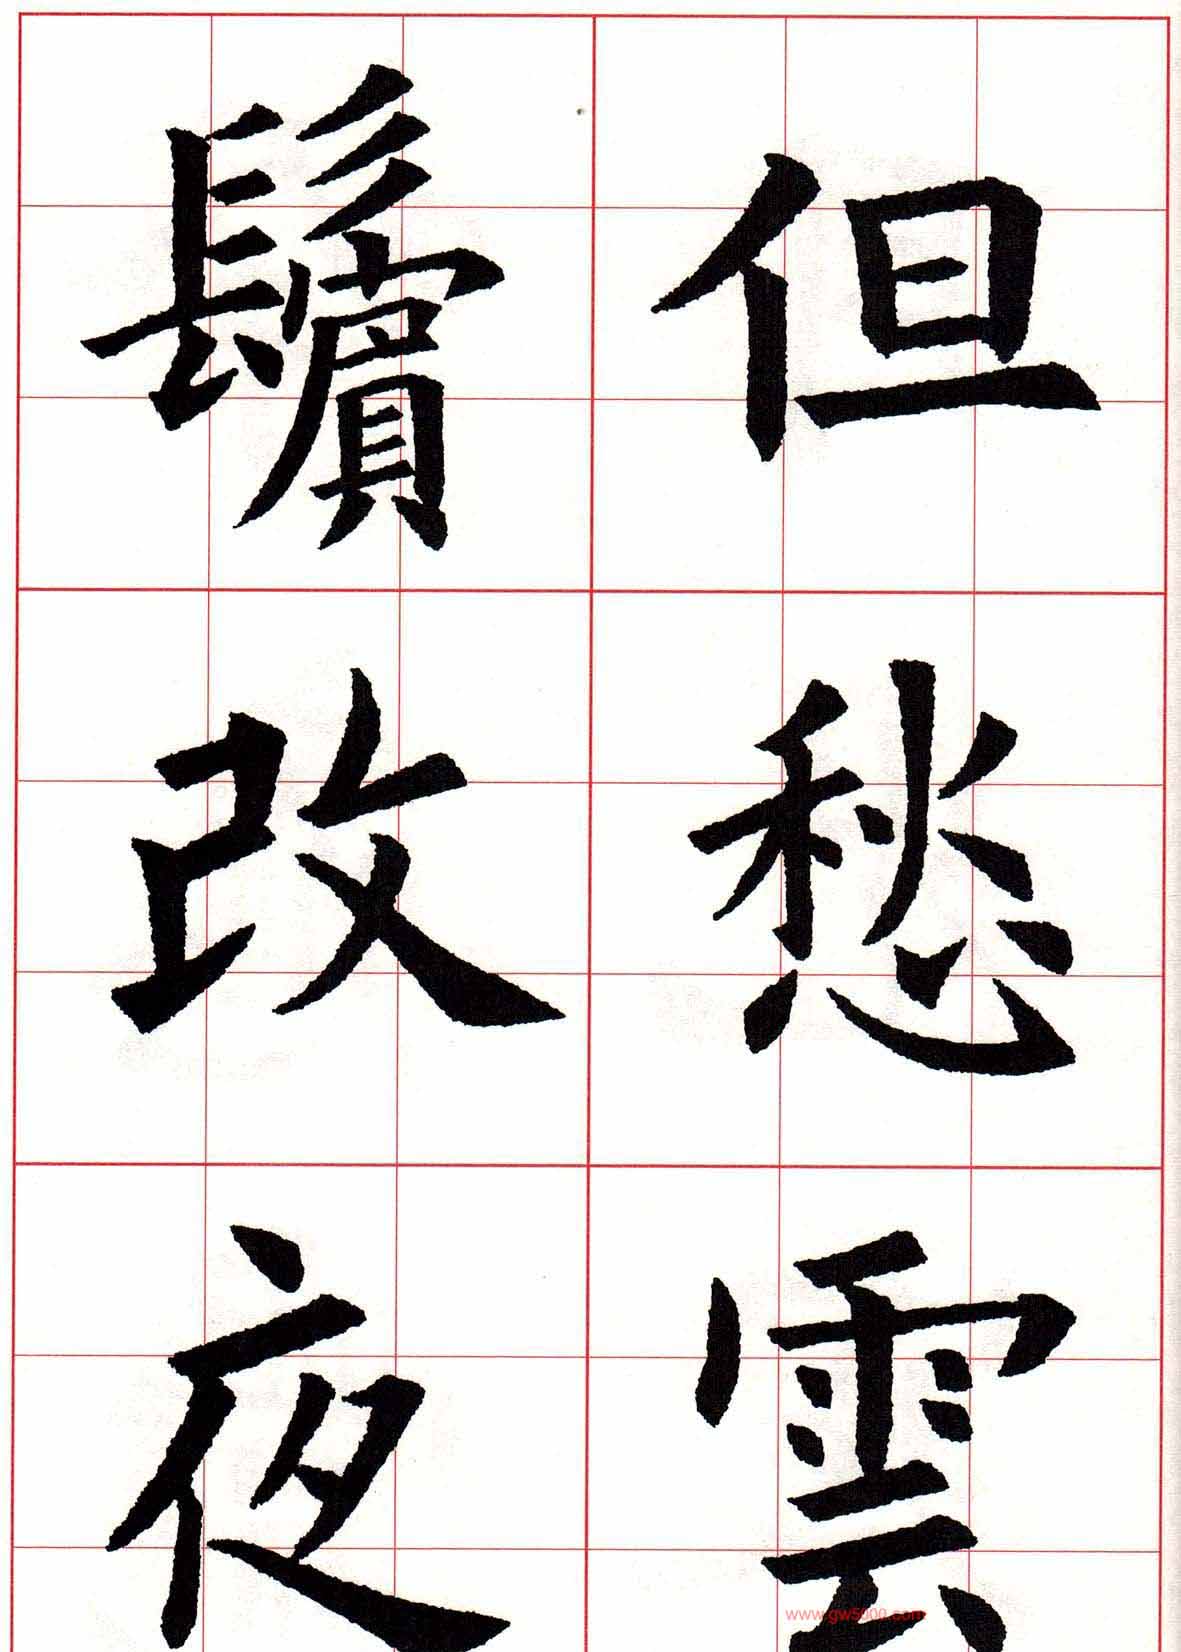 但愁雲
鬢改夜
www.gw5000.com